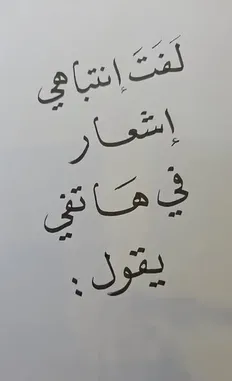 لَفَتَ إنتباهي
إشعار
في هَاتفي
يقول :